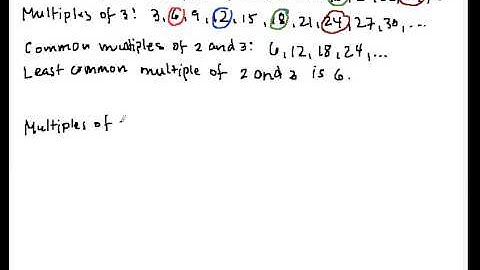 Multiples of 3: 3, 6, 9, 12, 15, 18, 21, 24, 27, 30, ...
Common multiples of 2 and 3: 6, 12, 18, 24, ...
Least common multiple of 2 and 3 is 6.
Multiples of